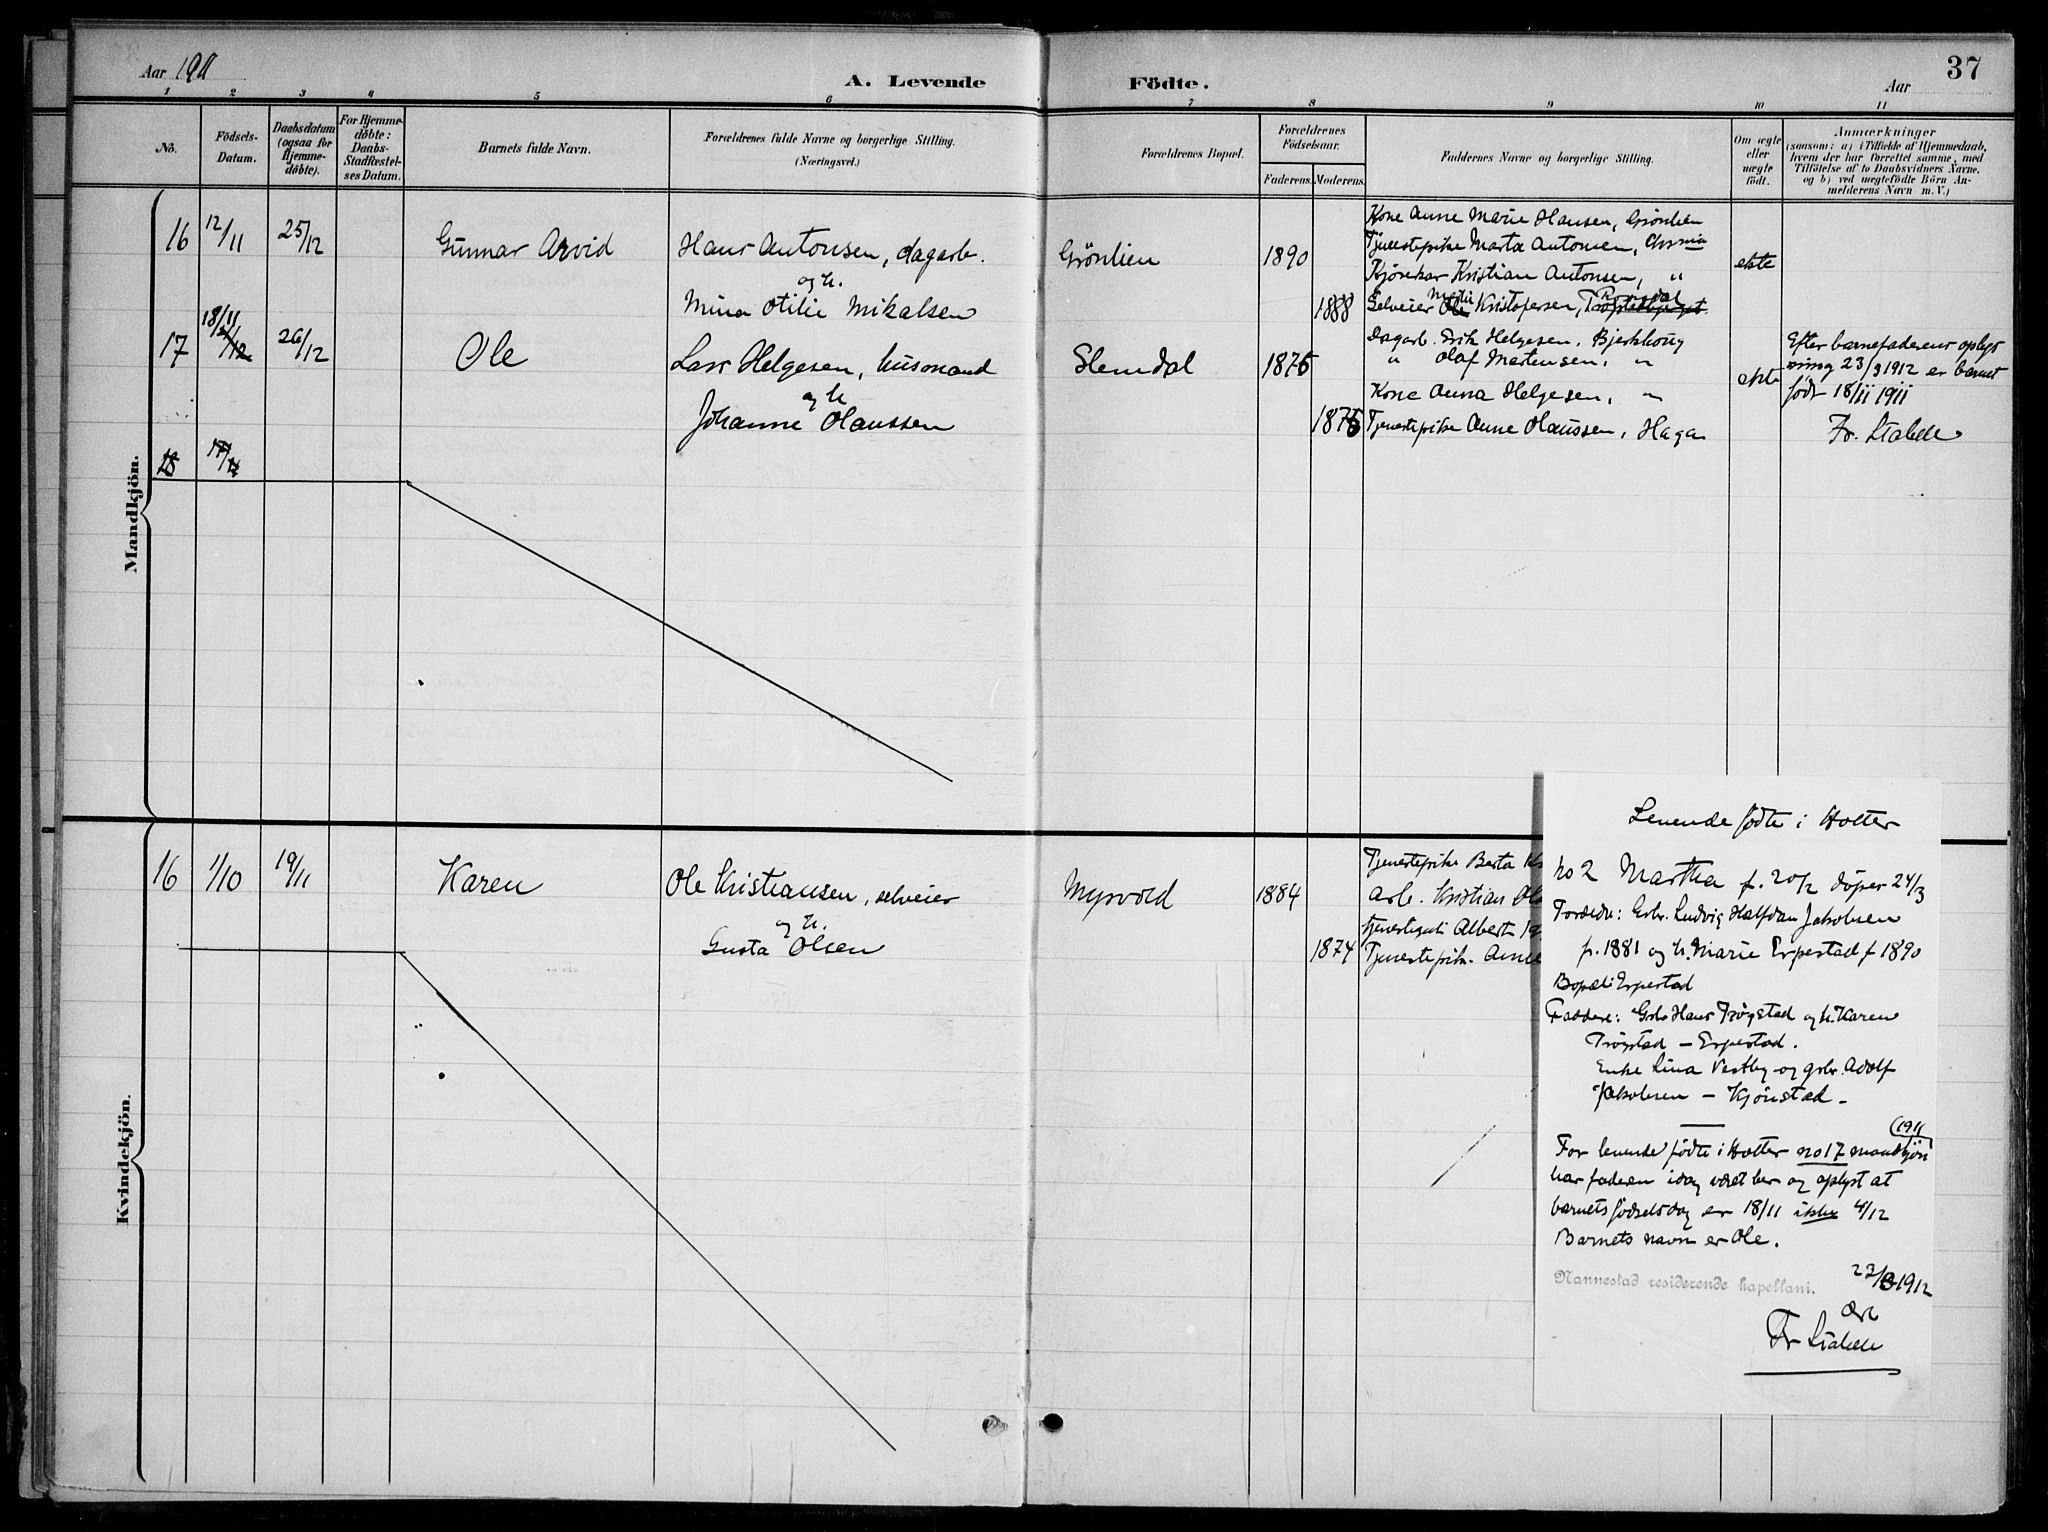 Aar 1911
A. Levende
Födte.
Aar
37
1 2 3 4 5 6 7 8 9 10 11
No.
Födsels-
Datum.
Daabsdatum
(ogsaa for
Hjemme-
döbte).
For Hjemme-
döbte:
Daabs-
Stadfæstel-
ses Datum.
Barnets fulde Navn.
Forældrenes fulde Navne og borgerlige Stilling.
(Næringsvei.)
Forældrenes Bopæl.
Forældrenes
Födselsaar.
Faderens. Moderens.
Faddernes Navne og borgerlige Stilling.
Om ægte
eller
uægte
födt.
Anmærkninger
(saasom: a) i Tilfælde af Hjemmedaab,
hvem der har forrettet samme, med
Tilföielse af to Daabsvidners Navne.
og b) ved uægtefödte Börn An-
melderens Navn m. V.)
Mandkjön.
16 12/11 25/12 Gunnar Arvid Hans Antonsen, dagarb. Grönlien 1890 ekte
og h.
Mina Otilie Mikalsen 1888
Kone Anne Marie Hansen, Grönlien
Tjenestepike Marta Antonsen, Chr.nia
Kjörekar Kristian Antonsen, "
Selveier Martin Kristofersen,
17 18/11 26/12 Ole Lars Helgesen, husmand Slemdal 1875 ekte
og h
Johanne Olaussen 1875
Dagarb. Erik Helgesen, Bjerkhoug
" Olaf Martensen, "
Kone Anna Helgesen, "
Tjenestepike Anne Olaussen, Haga
Efter barnefaderens oplys
ning 23/3 1912 er barnet
født 18/11 1911
Fr. Stabell
18
Kvindekjön.
16 1/10 19/11 Karen Ole Kristiansen, selveier Myrvold 1884
og h.
Gusta Olsen 1874
Tjenestepike Berta
Arb. Kristian
Albert
Tjenestepik. Anne
Levende fødte i Holter
No 2 Martha f. 20/2 døper 24/3
Foreldre: Grbr. Ludvig Halfdan Jakobsen
f. 1881 og h. Marie Erpestad f 1890
Bopæl: Erpestad
Faddere: Grbr Hans Trøgstad og h. Karen
Trøgstad – Erpestad.
Enke Lina Vestby og grbr. Adolf
Jakobsen – Kjønstad –
(1911
For levende fødte i Holter no 17 mandkjøn
har faderen idag været her og oplyst at
barnets fødselsdag er 18/11 ikke 4/12
Barnets navn er Ole.
Nannestad residerende kapellani. 23/3 1912
Fr Stabell